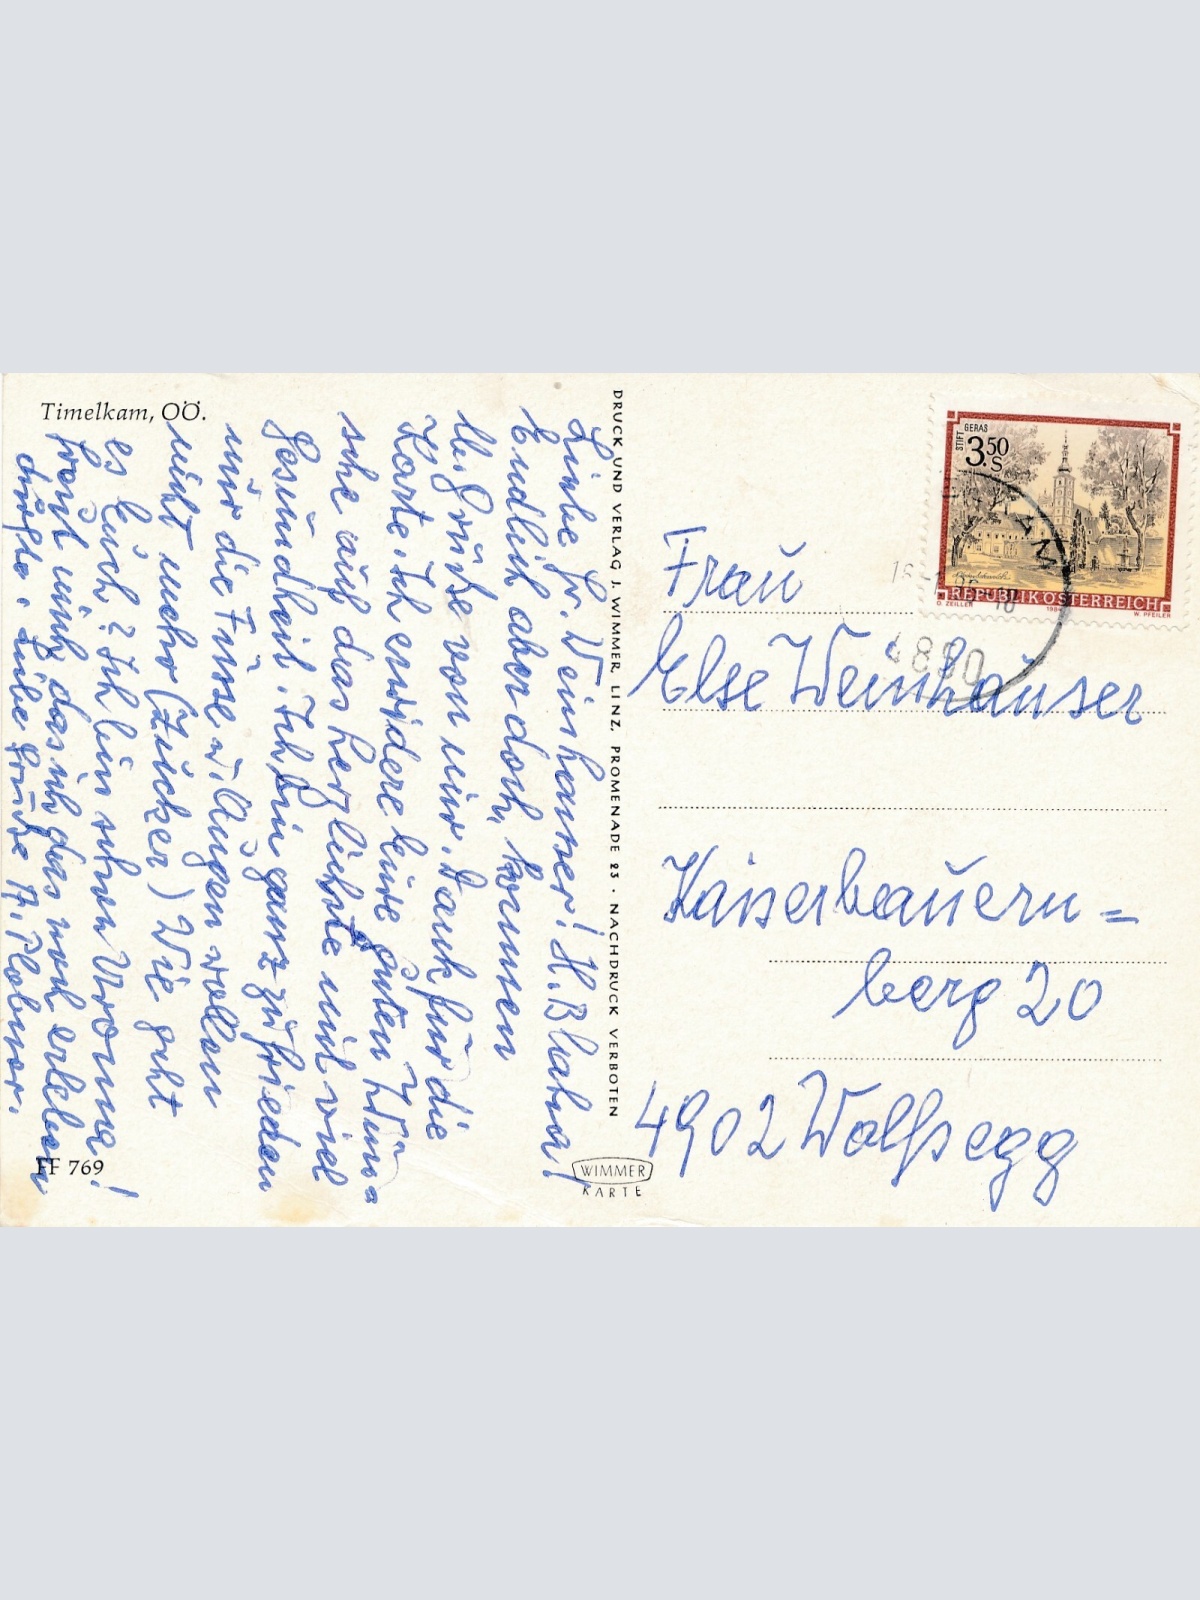 Timelkam, OÖ.
Liebe Fr. Weinhauser! H.
Endlich aber doch, kommen
lb. Grüße von mir. Dank für die
Karte. Ich erwidere Eure guten Wün=
sche auf das herzlichste mit viel
Gesundheit. Ich bin ganz zufrieden
nur die Füsse u. Augen wollen
nicht mehr (Zucker) Wie geht
es Euch? Ich bin schon Uroma!
freut mich das ich das noch erleben
durfte. Liebe Grüße A.
FF 769
DRUCK UND VERLAG J. WIMMER, LINZ, PROMENADE 23 · NACHDRUCK VERBOTEN
WIMMER
KARTE
STIFT GERAS
3.50
S
REPUBLIK ÖSTERREICH
O. ZEILLER 1984 W. PFEILER
4890
Frau
Else Weinhauser
Kaiserbauern=
berg 20
4902 Wolfsegg